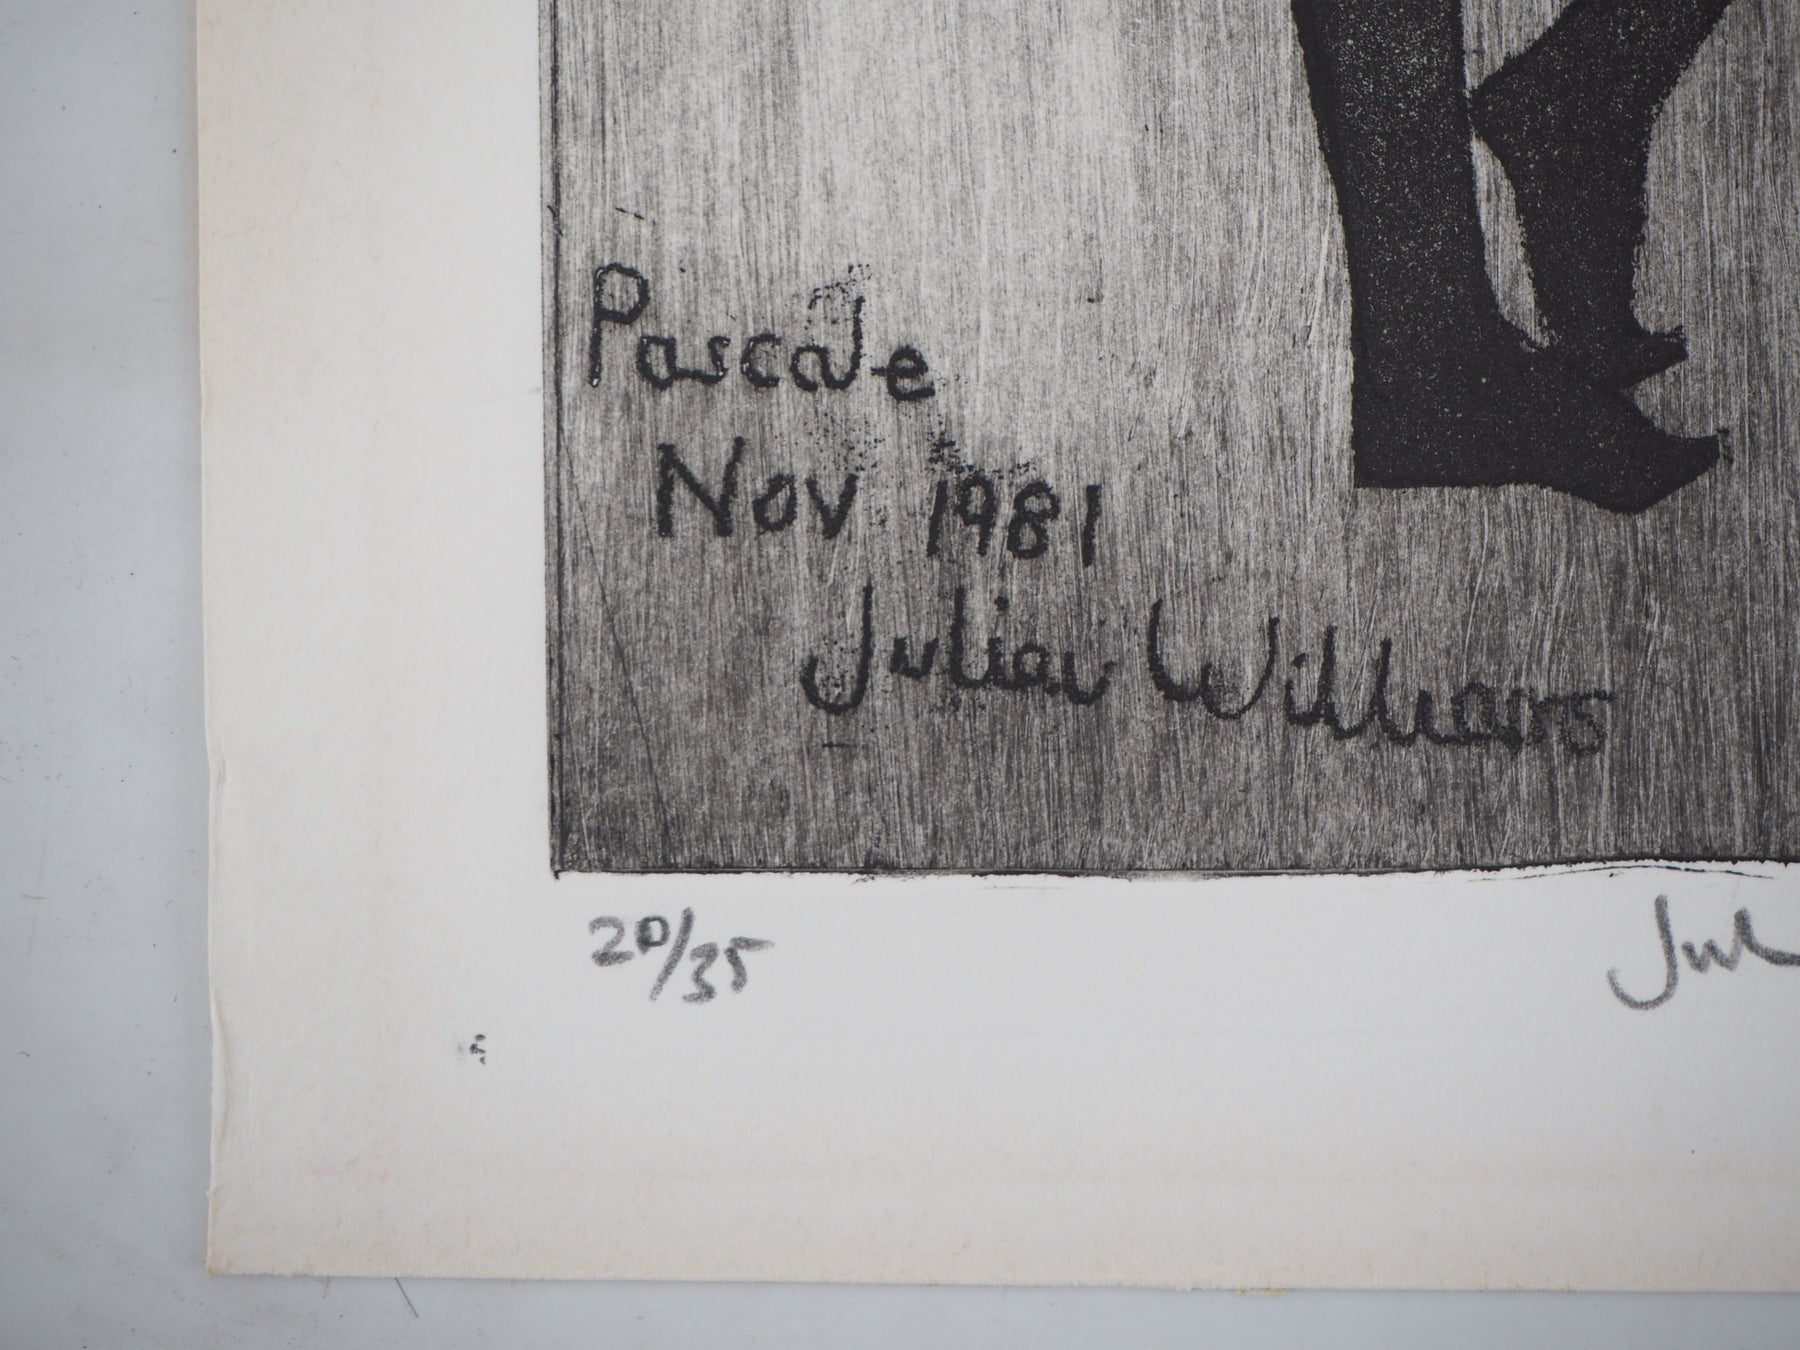 Pascale
Nov 1981
Julian Williams
20/35
Jul